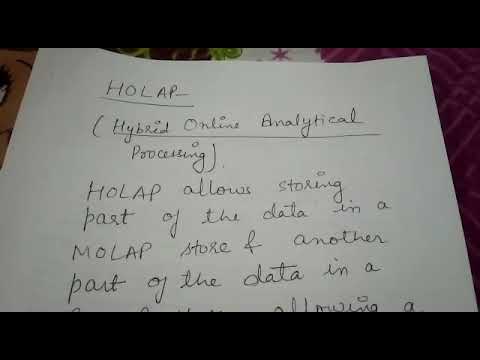 HOLAP-
(Hybrid Online Analytical
Processing).
HOLAP allows storing
part of the data in a
MOLAP store & another
part of the data in a
allowing a